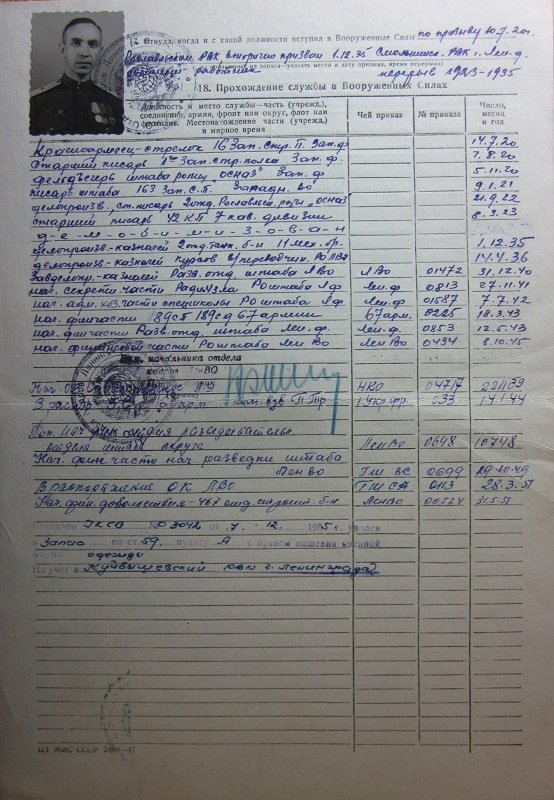 17. Откуда, когда и с какой должности вступил в Вооруженные Силы по призыву 10.7.20г.
Рославльским РВК, вторично призван 1.12.35 Смольнинск. РВК г. Лен-д.
работник перерыв 1923-1935
18. Прохождение службы в Вооруженных Силах
Должность и место службы—часть (учрежд.), соединение, армия, фронт или округ, флот или флотилия. Местонахождение части (учрежд.) в мирное время
Чей приказ
№ приказа
Число, месяц и год
Красноармеец-стрелок 16 Зап. стр. п. Зап. ф 14.7.20.
Старший писарь 1го Зап. стр. полка Зап. ф. 7.8.20
штаба роты „осназ" Зап. ф 5.11.20
писарь штаба 163 Зап. с.п. Западн. ВО 9.1.21
делопроизв., ст. писарь 2 отд. Рославльск. роты „осназ" 21.9.22
старший писарь 42 КП 7 кав. дивизии 8.3.23
д-е-м-о-б-и-л-и-з-о-в-а-н
делопроизв-казначей 2 отд. танк. б-н 11 мех. бр. 1.12.35
делопроизв-казначей курсов в/переводчик. РО ЛВО 14.4.36
казначей Разв. отд. штаба ЛВО ЛВО 01472 31.12.40
нач. секретн. части Радиоузла РО штаба Лф Лен.ф 0813 27.11.41
нач. адм. хоз. части спецшколы РО штаба Лф Лен.ф 01587 7.7.42
нач. финчасти 189 сд 67 армии 67 арм. 0225 18.3.43
нач. финчасти Разв. отд. штаба Лен. ф. Лен.ф. 0853 12.5.43
нач. финансовой части РО штаба Лен ВО Лен ВО 0494 8.10.45
начальника отдела
НКО 04717
1 Укр. фр. 033
отдела штаба округа Лен ВО 0648 10.7.48
Нач. фин части нач. разведки штаба
Лен ВО ГШ ВС 0699 29.10.49
В распоряжение ОК ЛВО ГШ СА 0113 28.3.51
Нач. фин. довольствия - 467 отд. б-н ЛенВО 00524 31.5.51
Приказом № 03042 от 7. 12. 1955 г. уволен
в Запас по ст. 59. пункту А с правом ношения военной
одежды
На учет в Куйбышевский РВК г. Ленинграда
ЦТ МВС СССР